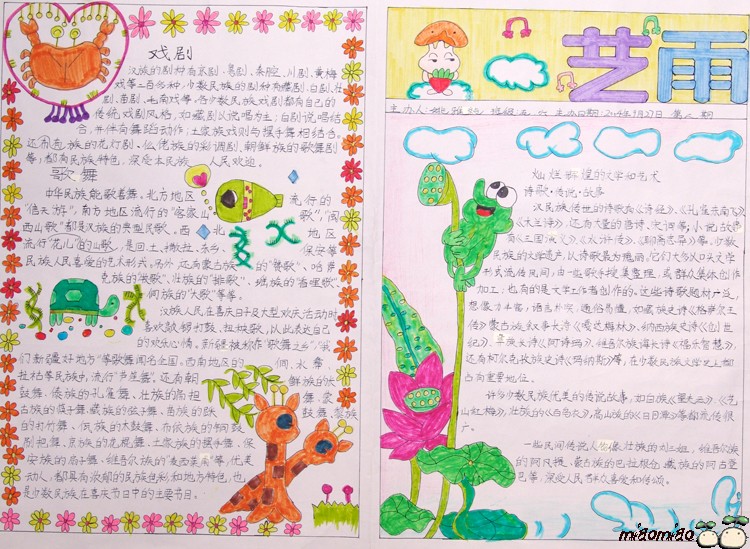 戏剧
汉族的剧种有京剧、粤剧、秦腔、川剧、黄梅
戏等三百多种，少数民族的剧种有藏剧、白剧、壮
剧、苗剧、毛南戏等。各少数民族戏剧都有自己的
传统戏剧风格，如藏剧以说唱为主；白剧说唱结
合，并伴有舞蹈动作；土家族戏则与摆手舞相结合。
还有壮族的花灯剧、仫佬族的彩调剧、朝鲜族的歌舞剧
等，都有民族特色，深受本民族人民欢迎。
歌舞
中华民族能歌善舞。北方地区流行的
"信天游"，南方地区流行的"客家山歌""闽
西山歌"都是汉族的典型民歌。西北地区
流行"花儿"的山歌，是回、土、撒拉、东乡、保安等
民族人民喜爱的艺术形式。另外还有蒙古族的"赞歌"、哈萨
克族的、壮族的"排歌"、瑶族的"香哩歌"
侗族的"大歌"等等。
汉族人民在喜庆日子及大型欢庆活动时
喜欢鼓锣打鼓、扭秧歌，以此表达自己
的欢快心情。新疆被称作"歌舞之乡"，
们新疆好地方"等歌舞闻名全国。西南地区的侗、水、彝、
拉祜等民族中，流行"芦笙舞"。还有朝鲜族的长
鼓舞、傣族的孔雀舞、壮族的扁担舞、蒙
古族的筷子舞、藏族的弦子舞、苗族的鼓舞、黎族
的打竹舞、佤族的木鼓舞、布依族的铜鼓
刷把舞、京族的花棍舞、土家族的摆手舞、保
安族的扇子舞、维吾尔族的"麦西莱甫"等，优美
动人，都具有浓郁的民族色彩和地方特色，也
是少数民族在喜庆节日中的主要节目。
芝雨
主办人: 班级: 主办日期: 2014年1月27日 第二期
灿烂辉煌的文学和艺术
诗歌·传说·故事
汉民族传世的诗歌有《诗经》、《孔雀东南飞》
《木兰诗》，还有大量的唐诗、宋词等；小说故事
有《三国演义》、《水浒传》、《聊斋志异》等。少数
民族的文学遗产，以诗歌最为瑰丽，它们大多以口头文学
形式流传民间，由一些歌手搜集整理，或群众集体创作
加工；也有的是文学工作者创作的。这些诗歌题材广泛，
想像力丰富，语言朴实、通俗易懂。如藏族史诗《格萨尔王
传》、蒙古族叙事长诗《嘎达梅林》、纳西族史诗《创世
纪》、彝族史诗《阿诗玛》、维吾尔族诗长诗《福乐智慧》，
还有柯尔克孜族史诗《玛纳斯》等，在少数民族文学史上都
占有重要地位。
许多少数民族优美的传说故事，如白族《望夫云》、《艺
山红梅》，壮族的《白鸟衣》，高山族的《日月潭》等都流传很
广。
一些民间传说人物像壮族的刘三姐、维吾尔族
的阿凡提、蒙古族的巴拉根仓、藏族的阿古登
巴等，深受人民群众喜爱和传颂。
miāomiāo